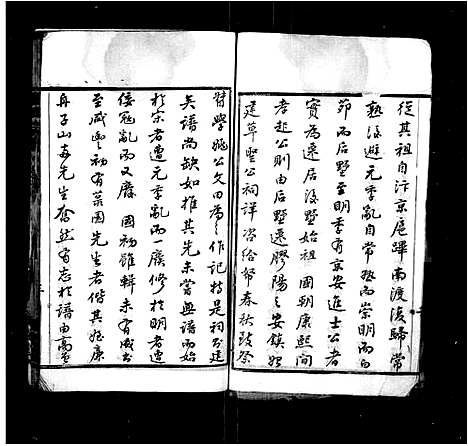 從其祖自汴京扈蹕南渡後歸常
熟後避元季亂自常熟而崇明而白
茆而后墅至明季有京安進士公者
實為遷居后墅始祖 國朝康熙間
孝 公則由后墅遷膠陽之安鎮始
建草聖公祠詳 春秋致祭
督學 公文田為之作記於是祠已建
矣譜尚缺如推其先未嘗無譜而始
於宋者遭元季亂而一廢修於明者遭
倭寇亂而又廢 國初雖輯未有成書
至咸豐初有菜園先生者偕其姪康
舟子山兩先生奮然有志於譜由高